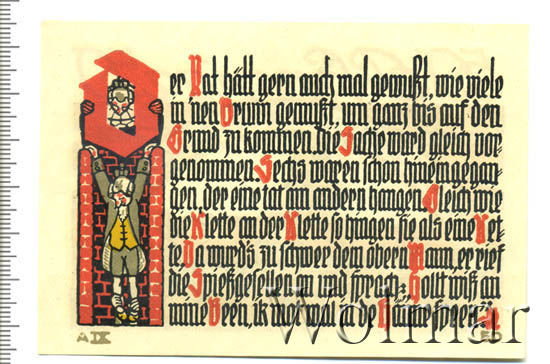 Der Rat hätt gern auch mal gewußt, wie viele
in 'nen Brunn gemußt, um ganz bis auf den
Grund zu kommen. Die Sache ward gleich vor-
genommen. Sechs waren schon hineingegan-
gen, der eine tat am andern hangen. Gleich wie
die Klette an der Klette so hingen sie als eine Ket-
te. Da wurd's zu schwer dem obern Mann, er rief
die Spießgesellen an und sprach: Hollt wiß an
mine Been, ik mot mal in de Hänne speen.
A IX
ED
Wolmar